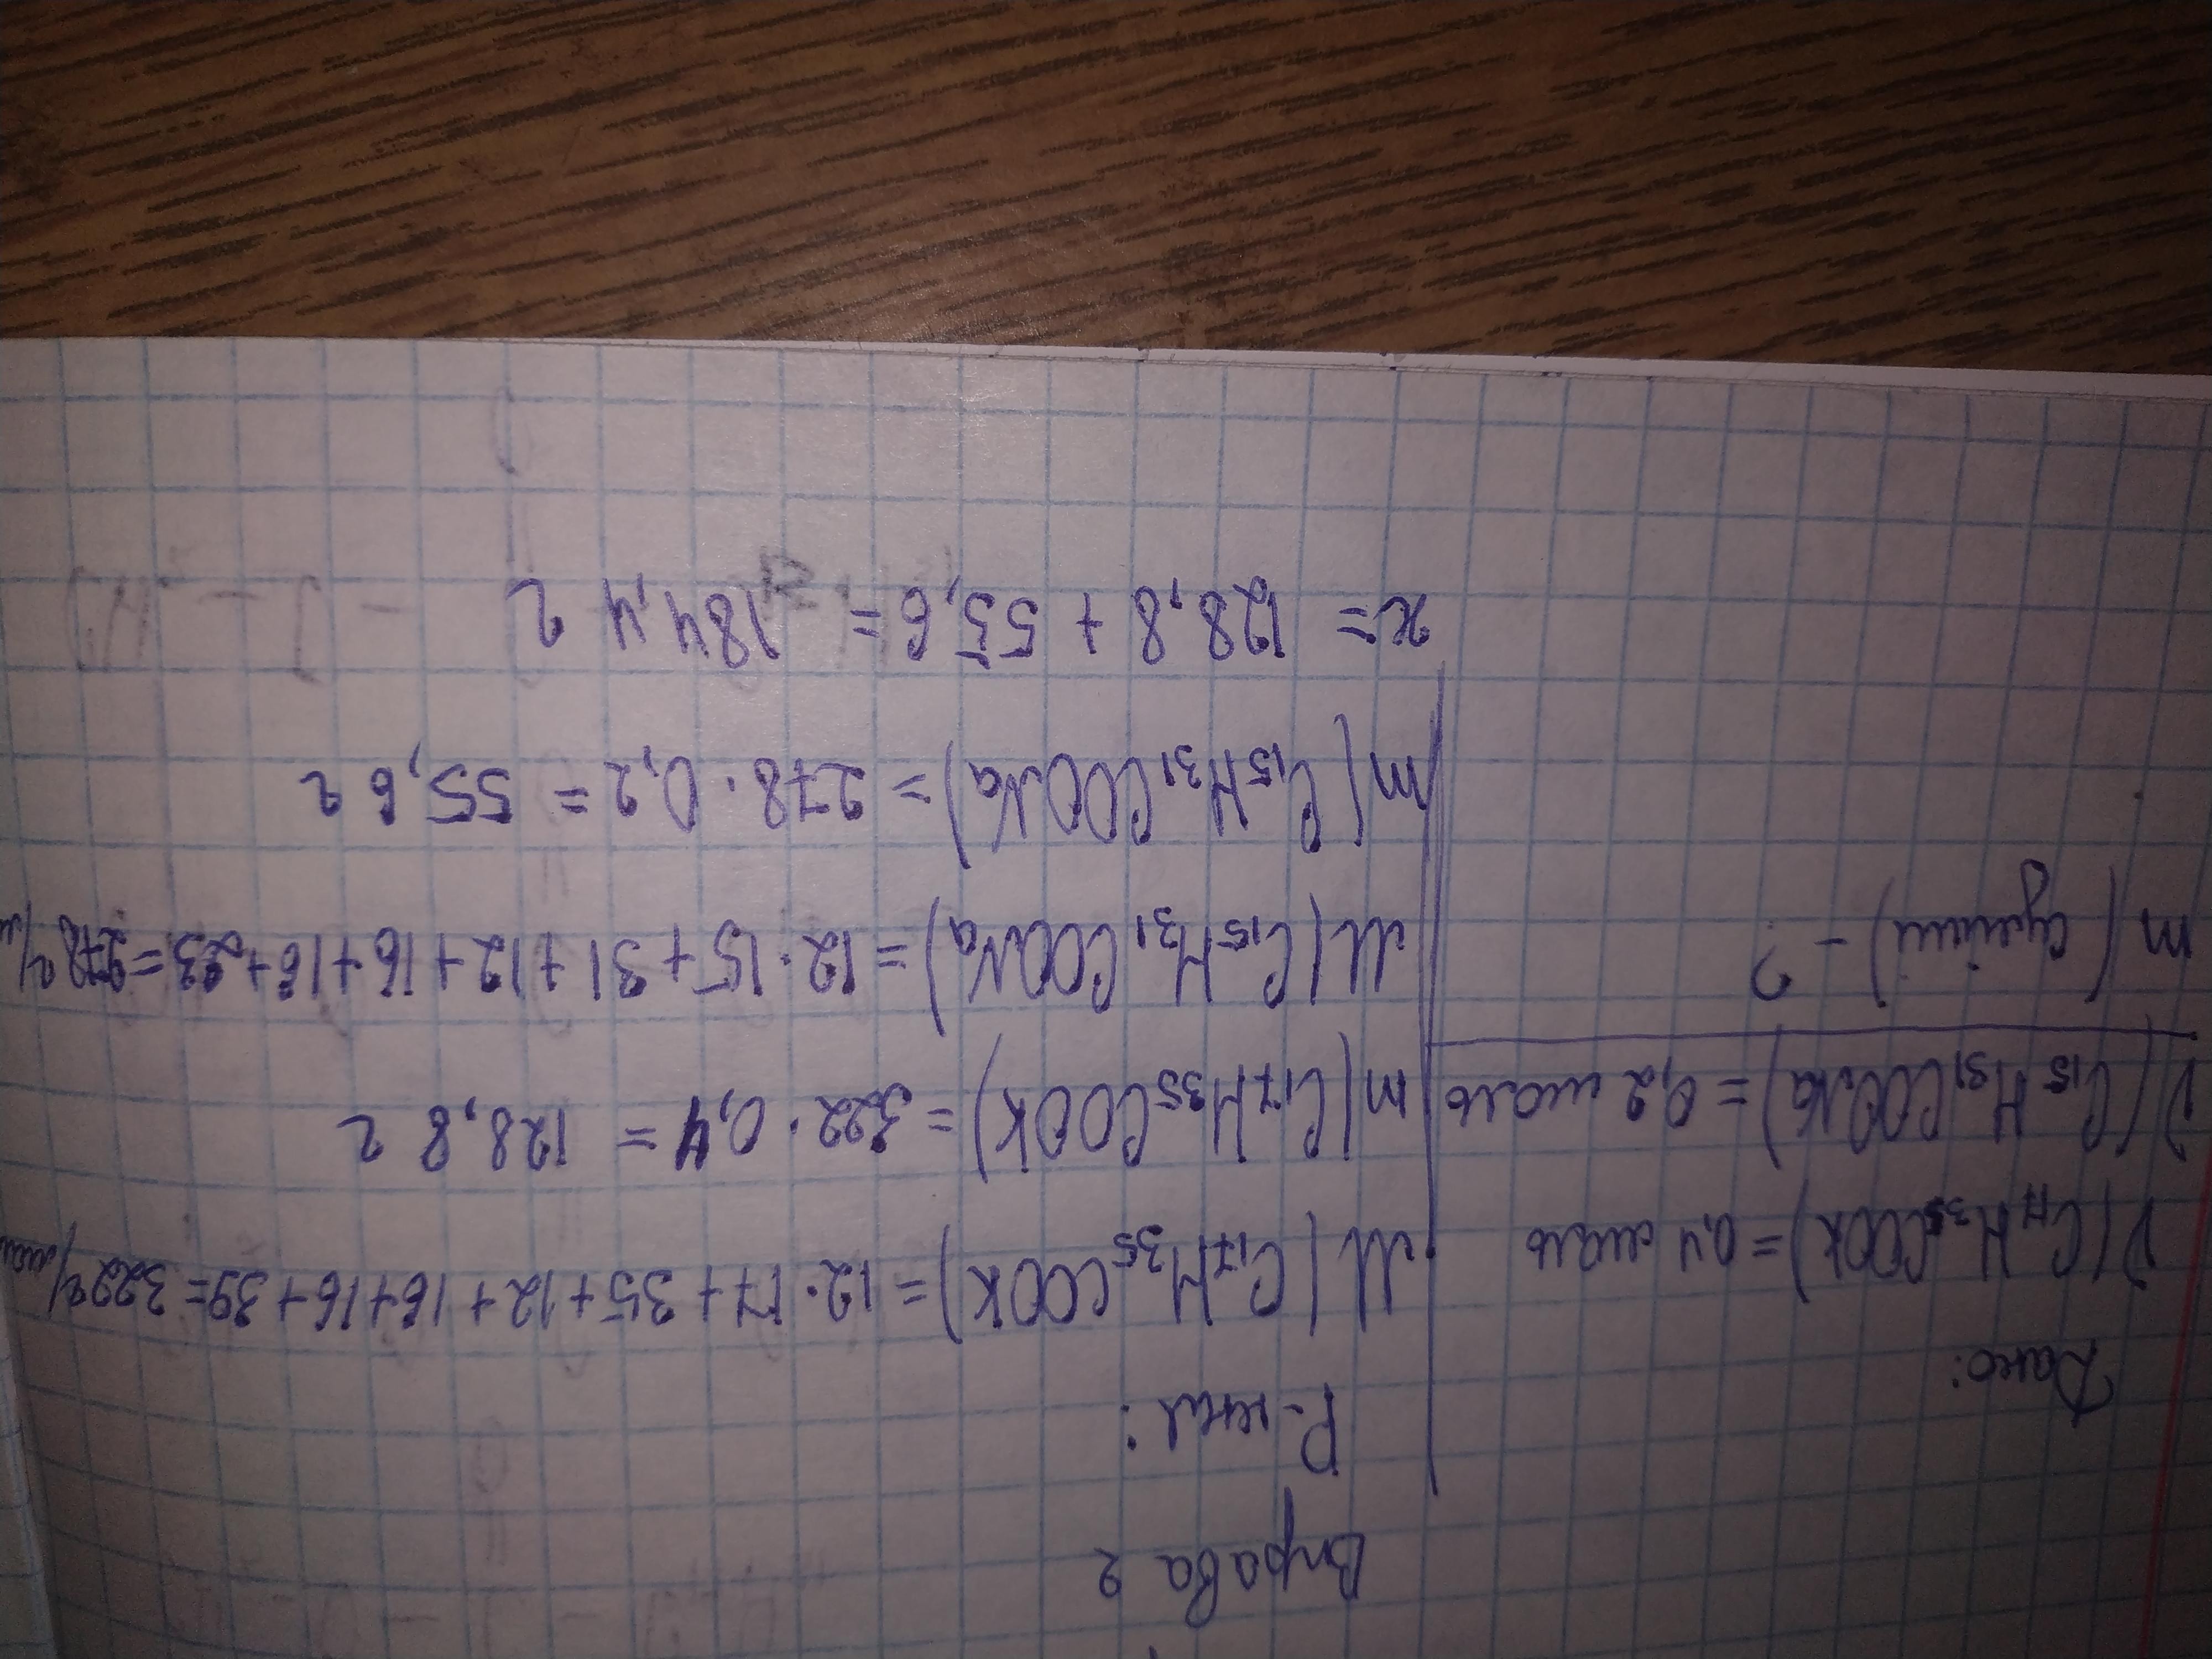 Вправа 2
Дано:
ν(C₁₇H₃₅COOK) = 0,4 моль
ν(C₁₅H₃₁COONa) = 0,2 моль
m(суміші) - ?
Р-ння:
M(C₁₇H₃₅COOK) = 12·17+35+12+16+16+39=322г/моль
m(C₁₇H₃₅COOK) = 322·0,4 = 128,8 г
M(C₁₅H₃₁COONa) = 12·15+31+12+16+16+23=278г/м
m(C₁₅H₃₁COONa) = 278·0,2 = 55,6 г
x = 128,8 + 55,6 = 184,4 г